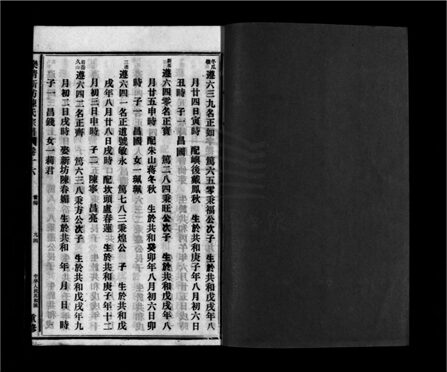 遵六三九名正如 篤六五零秉福公次子 生於共和戊戌年八
月廿四日寅時 配嶼後戴鳳秋 生於共和庚子年八月初六日
丑時 子一 昌國
遵六四零名正寶 篤二八四秉旺公次子 生於共和戊戌年八
月廿五申時 配朱山蔣冬秋 生於共和癸卯年八月初六日卯
時 子一 昌國 女一珮珮
遵六四一名正道號敏永 篤七八三秉煌公 子 生於共和戊
戌年八月廿八日戌時 配坎頭盧春蓮 生於共和庚子年十二
月初三日申時 子二 陳寧 昌亮
遵六四二名正齊 篤六三八秉方公次子 生於共和戊戌年九
月初二日戌時 娶新坊陳春媚 生於共和 年 月 日 時
子一 昌錢 女一莉君